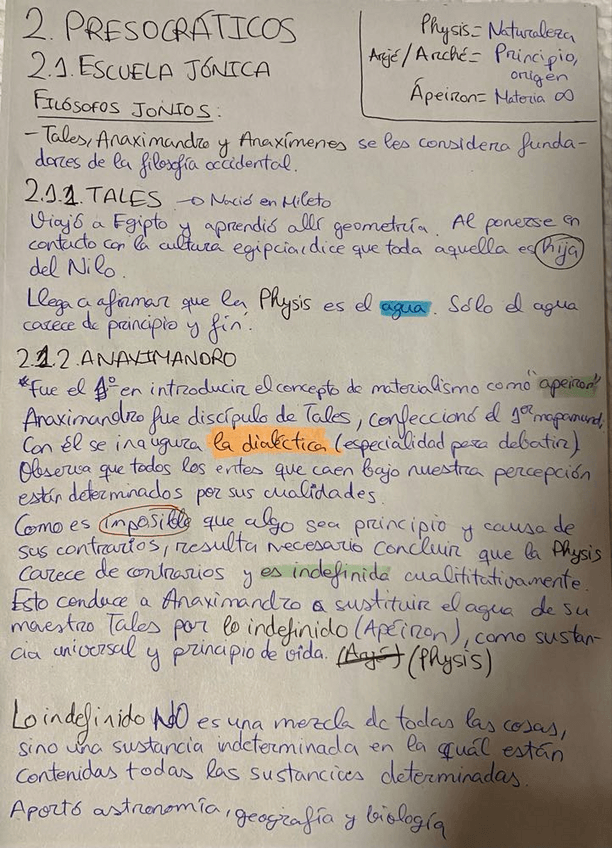 2. PRESOCRÁTICOS
Physis= Naturaleza
Arjé/Arché= Principio,
origen
Ápeiron= Materia ∞
2.1. ESCUELA JÓNICA
FILÓSOFOS JONIOS:
- Tales, Anaximandro y Anaxímenes se les considera funda-
dores de la filosfía occidental.
2.1.1. TALES → Nació en Mileto
Viajó a Egipto y aprendió allí geometría. Al ponerse en
contacto con la cultura egipcia, dice que toda aquella es hija
del Nilo.
Llega a afirmar que la Physis es el agua. Sólo el agua
carece de principio y fin.
2.1.2. ANAXIMANDRO
*Fue el 1º en introducir el concepto de materialismo como "apeiron"
Anaximandro fue discípulo de Tales, confeccionó el 1er mapamund.
Con él se inaugura la dialéctica (especialidad para debatir)
Observa que todos los entes que caen bajo nuestra percepción
están determinados por sus cualidades.
Como es imposible que algo sea principio y causa de
sus contrarios, resulta necesario concluir que la Physis
carece de contrarios y es indefinida cualititativamente.
Esto conduce a Anaximandro a sustituir el agua de su
maestro Tales por lo indefinido (Apéiron), como sustan-
cia universal y principio de vida. (Arjé) (Physis)
Lo indefinido NO es una mezcla de todas las cosas,
sino una sustancia indeterminada en la cuál están
contenidas todas las sustancias determinadas.
Aportó astronomía, geografía y biología